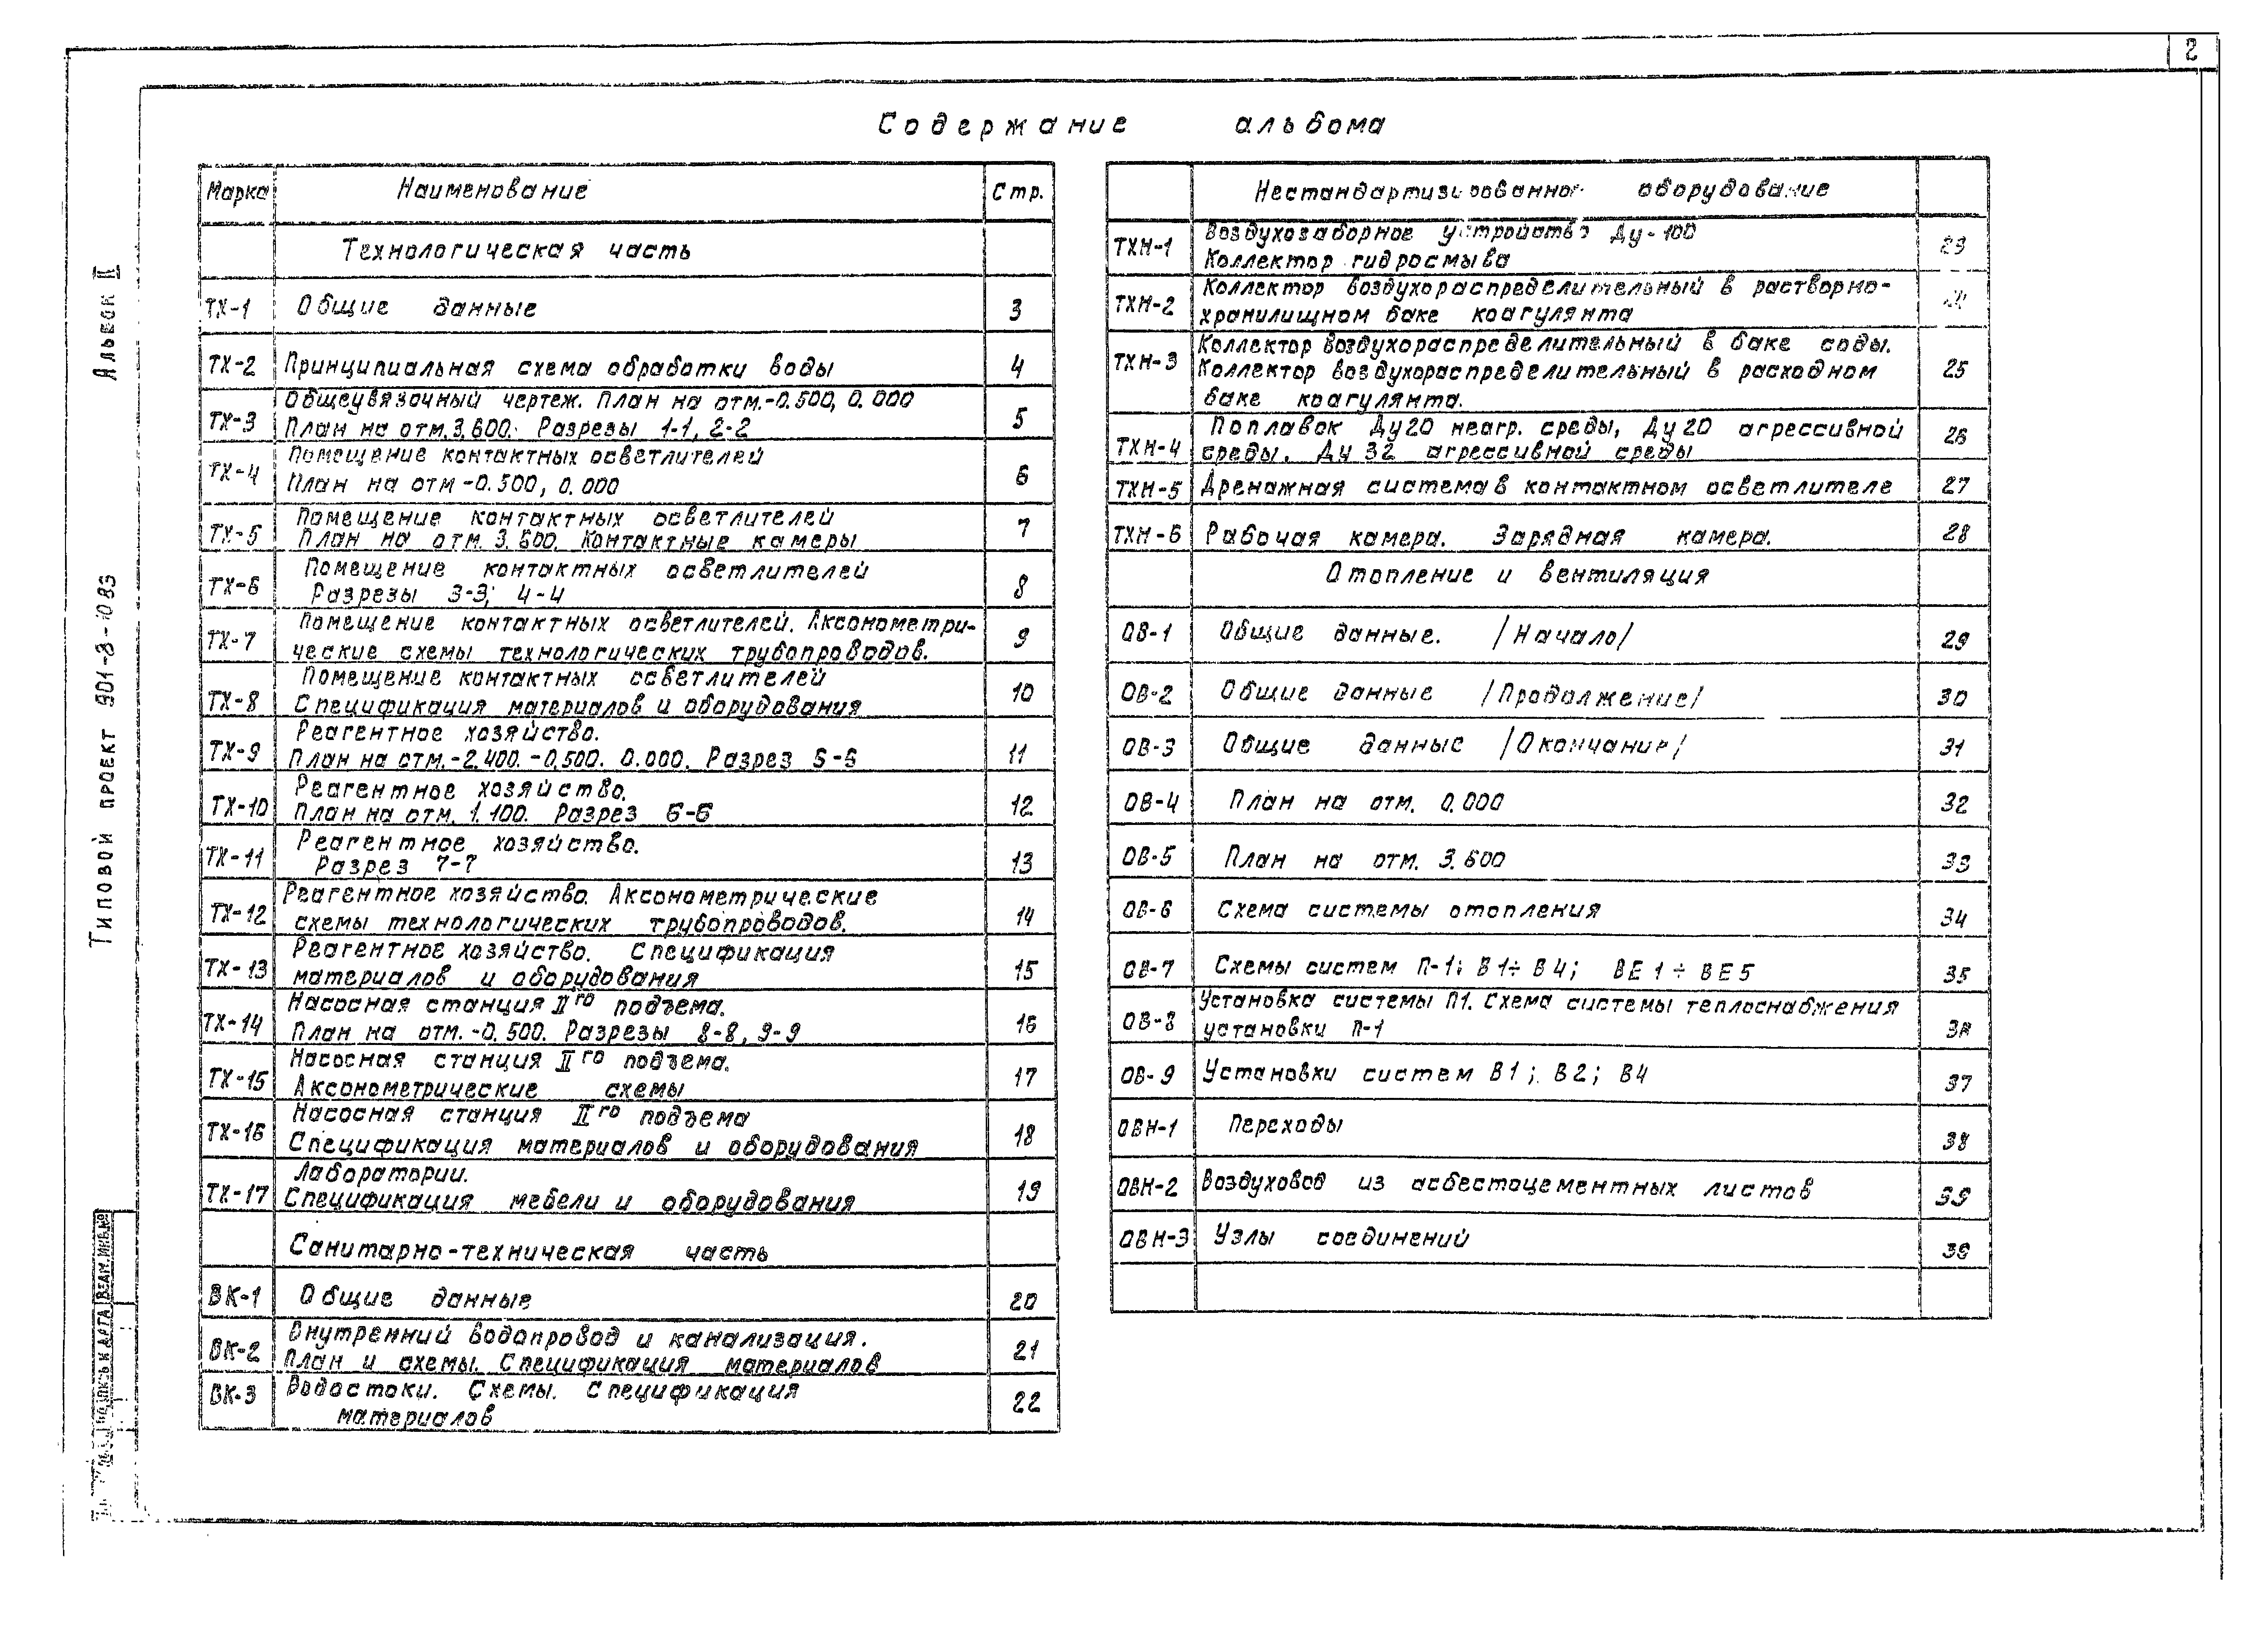 2
Содержание альбома
Альбом II
Типовой проект 901-3-10 83
Марка Наименование Стр.
Технологическая часть
ТХ-1 Общие данные 3
ТХ-2 Принципиальная схема обработки воды 4
ТХ-3 Общеувязочный чертеж. План на отм.-0.500, 0.000
План на отм. 3.600. Разрезы 1-1, 2-2 5
ТХ-4 Помещение контактных осветлителей
План на отм -0.500, 0.000 6
ТХ-5 Помещение контактных осветлителей
План на отм. 3.600. Контактные камеры 7
ТХ-6 Помещение контактных осветлителей
Разрезы 3-3; 4-4 8
ТХ-7 Помещение контактных осветлителей. Аксонометри-
ческие схемы технологических трубопроводов. 9
ТХ-8 Помещение контактных осветлителей
Спецификация материалов и оборудования 10
ТХ-9 Реагентное хозяйство.
План на отм.-2.400. -0.500. 0.000. Разрез 5-5 11
ТХ-10 Реагентное хозяйство.
План на отм. 1.100. Разрез 6-6 12
ТХ-11 Реагентное хозяйство.
Разрез 7-7 13
ТХ-12 Реагентное хозяйство. Аксонометрические
схемы технологических трубопроводов. 14
ТХ-13 Реагентное хозяйство. Спецификация
материалов и оборудования 15
ТХ-14 Насосная станция IIго подъема.
План на отм.-0.500. Разрезы 8-8, 9-9 16
ТХ-15 Насосная станция IIго подъема.
Аксонометрические схемы 17
ТХ-16 Насосная станция IIго подъема
Спецификация материалов и оборудования 18
ТХ-17 Лаборатории.
Спецификация мебели и оборудования 19
Санитарно-техническая часть
ВК-1 Общие данные 20
ВК-2 Внутренний водопровод и канализация.
План и схемы. Спецификация материалов 21
ВК-3 Водостоки. Схемы. Спецификация
материалов 22
Нестандартизированное оборудование
ТХН-1 Воздухозаборное устройство Ду-100
Коллектор гидросмыва 23
ТХН-2 Коллектор воздухораспределительный в растворно-
хранилищном баке коагулянта
ТХН-3 Коллектор воздухораспределительный в баке соды.
Коллектор воздухораспределительный в расходном
баке коагулянта. 25
ТХН-4 Поплавок Ду20 неагр. среды, Ду20 агрессивной
среды. Ду 32 агрессивной среды 26
ТХН-5 Дренажная система в контактном осветлителе 27
ТХН-6 Рабочая камера. Зарядная камера. 28
Отопление и вентиляция
ОВ-1 Общие данные. /Начало/ 29
ОВ-2 Общие данные /Продолжение/ 30
ОВ-3 Общие данные /Окончание/ 31
ОВ-4 План на отм. 0.000 32
ОВ-5 План на отм. 3.600 33
ОВ-6 Схема системы отопления 34
ОВ-7 Схемы систем П-1; В1÷В4; ВЕ1÷ВЕ5 35
ОВ-8 Установка системы П1. Схема системы теплоснабжения
установки П-1
ОВ-9 Установки систем В1; В2; В4 37
ОВН-1 Переходы 38
ОВН-2 Воздуховод из асбестоцементных листов 39
ОВН-3 Узлы соединений
Взам.инв.№